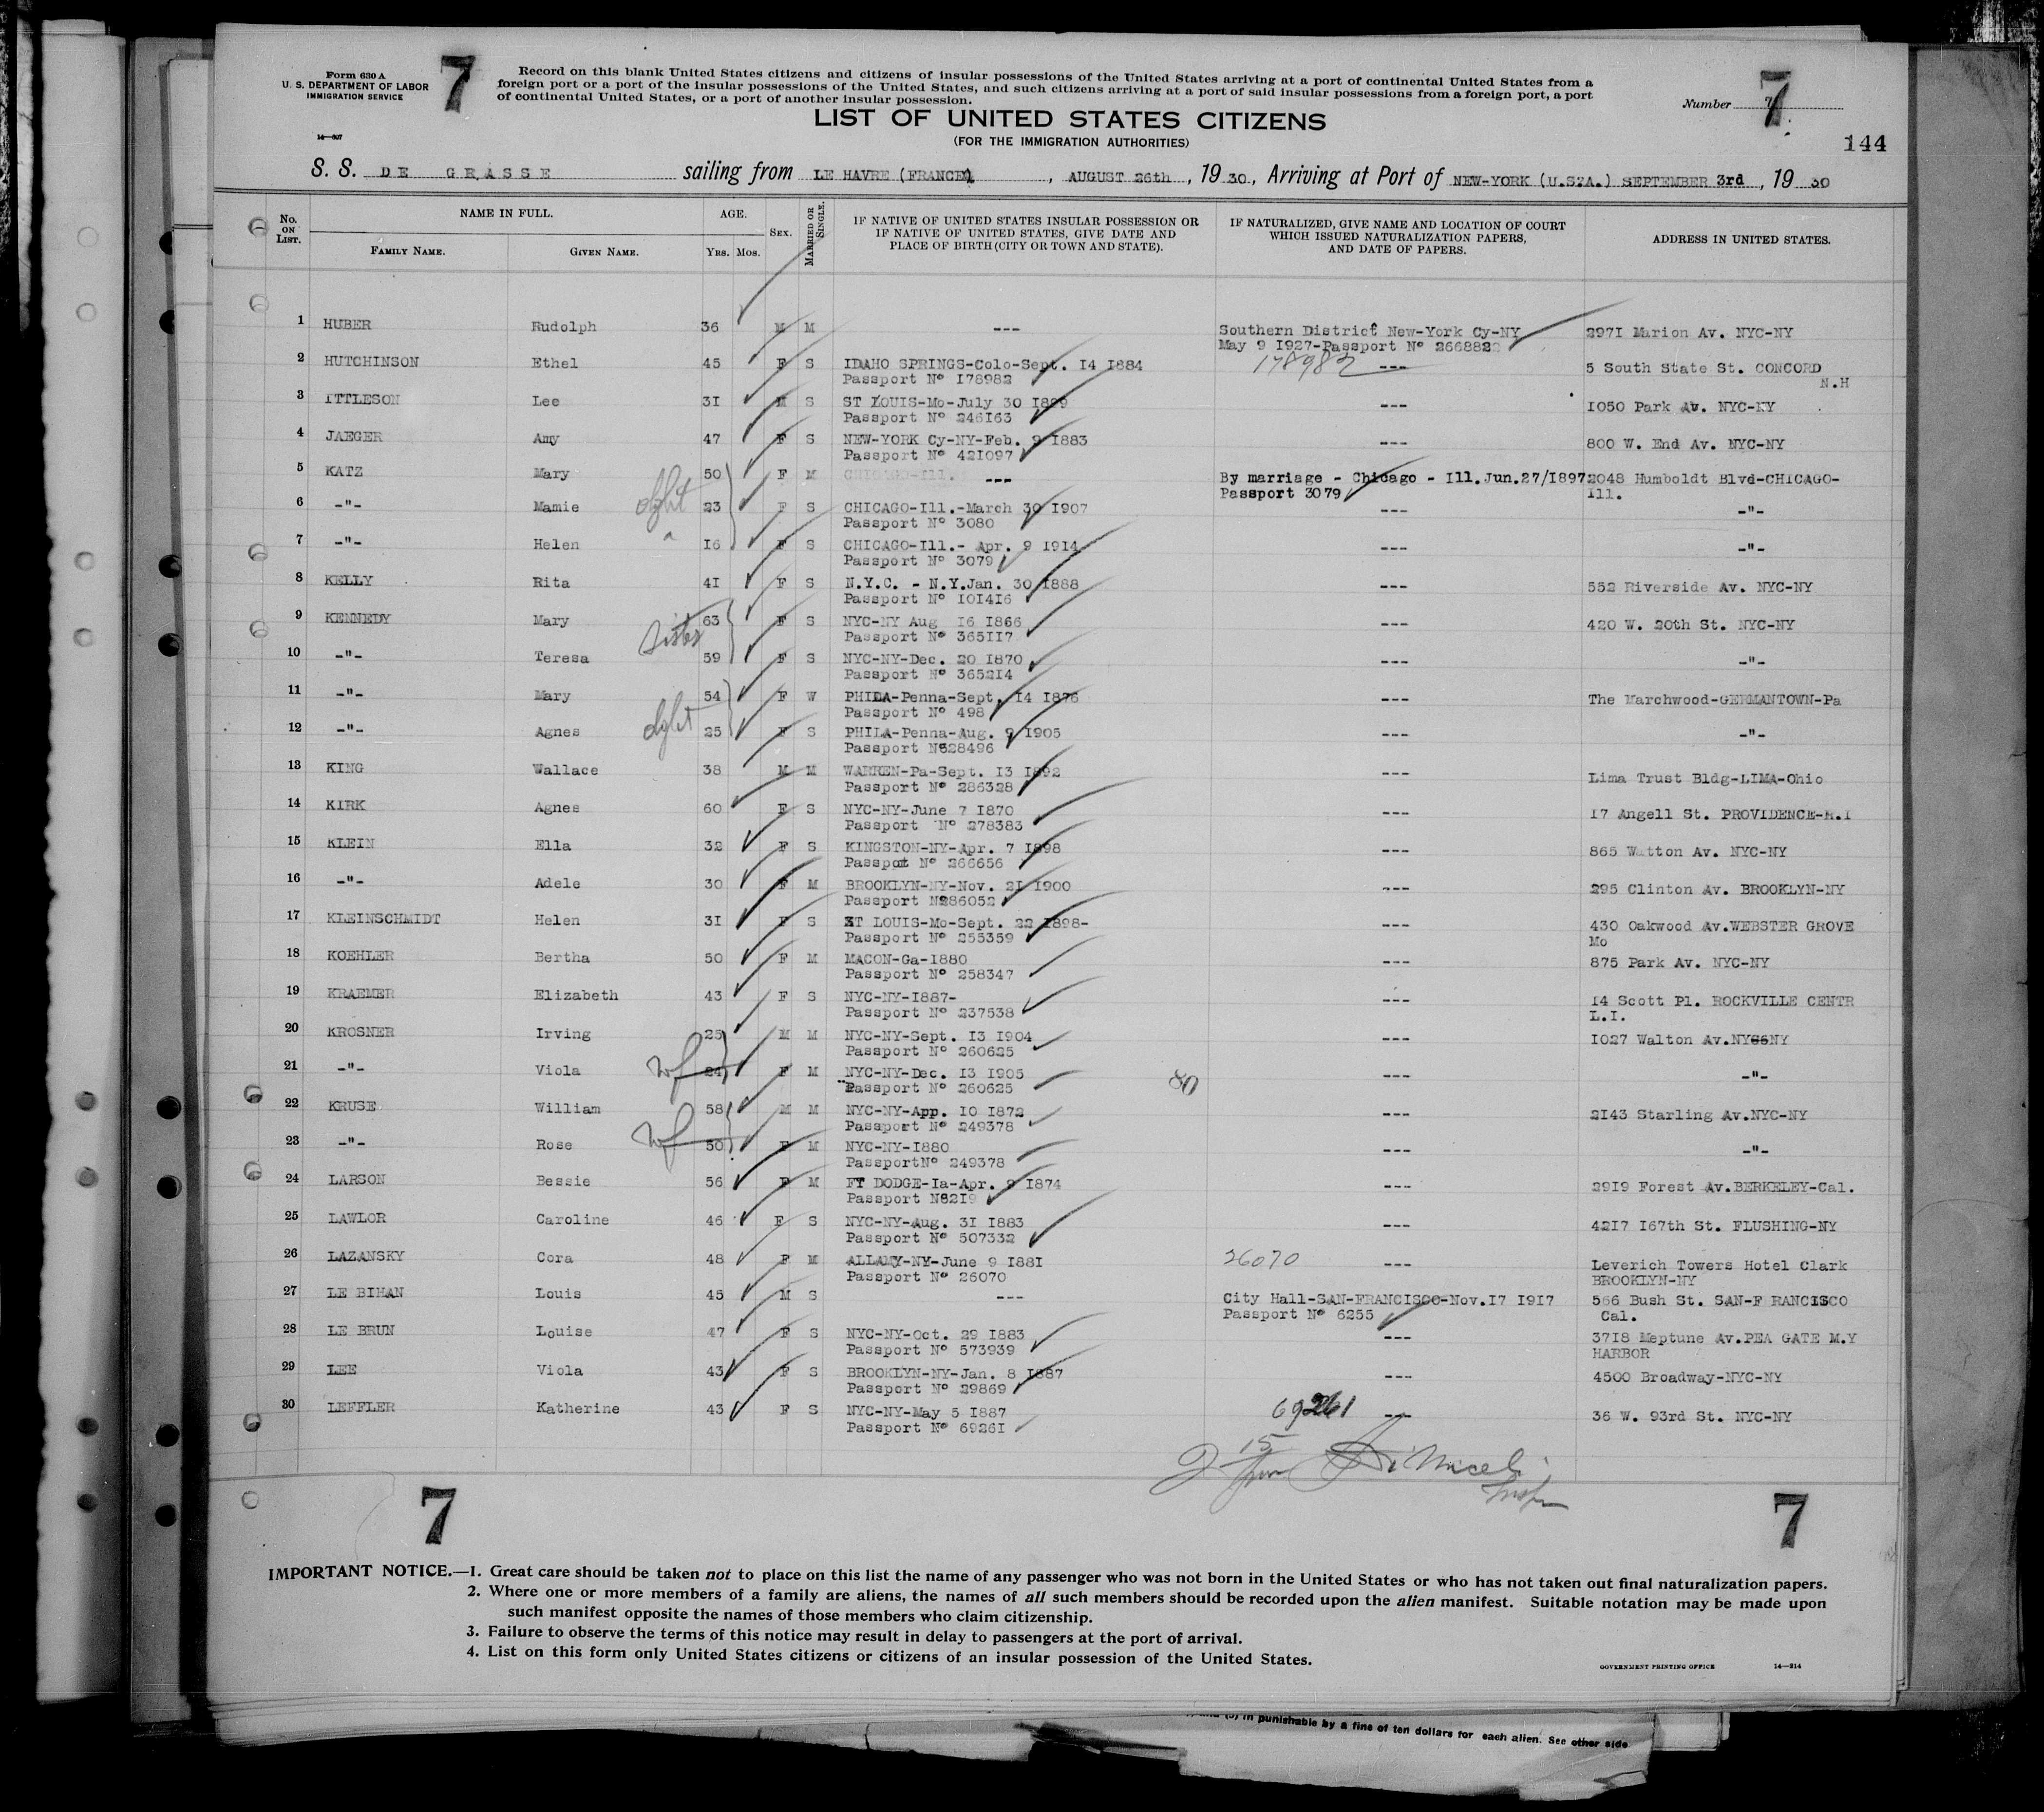 Form 630 A
U. S. DEPARTMENT OF LABOR
IMMIGRATION SERVICE
14—607
7
Record on this blank United States citizens and citizens of insular possessions of the United States arriving at a port of continental United States from a
foreign port or a port of the insular possessions of the United States, and such citizens arriving at a port of said insular possessions from a foreign port, a port
of continental United States, or a port of another insular possession.
Number 7
144
LIST OF UNITED STATES CITIZENS
(FOR THE IMMIGRATION AUTHORITIES)
S. S. DE GRASSE sailing from LE HAVRE (FRANCE), AUGUST 26th, 1930., Arriving at Port of NEW-YORK (U.S.A.) SEPTEMBER 3rd, 1930
No. ON LIST. NAME IN FULL. AGE. SEX. MARRIED OR SINGLE. IF NATIVE OF UNITED STATES INSULAR POSSESSION OR IF NATIVE OF UNITED STATES, GIVE DATE AND PLACE OF BIRTH (CITY OR TOWN AND STATE). IF NATURALIZED, GIVE NAME AND LOCATION OF COURT WHICH ISSUED NATURALIZATION PAPERS, AND DATE OF PAPERS. ADDRESS IN UNITED STATES.
FAMILY NAME. GIVEN NAME. YRS. MOS.
1 HUBER Rudolph 36 M M --- Southern District New-York Cy-NY 297I Marion Av. NYC-NY
May 9 I927-Passport N° 266882
2 HUTCHINSON Ethel 45 F S IDAHO SPRINGS-Colo-Sept. I4 I884 178982 --- 5 South State St. CONCORD
Passport N° I78982 N.H
3 ITTLESON Lee 3I M S ST LOUIS-Mo-July 30 I899 --- I050 Park Av. NYC-NY
Passport N° 246I63
4 JAEGER Amy 47 F S NEW-YORK Cy-NY-Feb. 9 I883 --- 800 W. End Av. NYC-NY
Passport N° 42I097
5 KATZ Mary 50 F M CHICAGO-Ill. --- By marriage - Chicago - Ill. Jun.27/I897 2048 Humboldt Blvd-CHICAGO-
Passport 3079 Ill.
6 -"- dght Mamie 23 F S CHICAGO-Ill.-March 30 I907 --- -"-
Passport N° 3080
7 -"- Helen I6 F S CHICAGO-Ill.- Apr. 9 I9I4 --- -"-
Passport N° 3079
8 KELLY Rita 4I F S N.Y.C. - N.Y.Jan. 30 I888 --- 552 Riverside Av. NYC-NY
Passport N° I0I4I6
9 KENNEDY Mary 63 F S NYC-NY Aug I6 I866 --- 420 W. 20th St. NYC-NY
sister Passport N° 365II7
10 -"- Teresa 59 F S NYC-NY-Dec. 20 I870 --- -"-
Passport N° 3652I4
11 -"- Mary 54 F W PHILA-Penna-Sept. I4 I876 --- The Marchwood-GERMANTOWN-Pa
Passport N° 498
12 -"- Agnes dght 25 F S PHILA-Penna-Aug. 9 I905 --- -"-
Passport N528496
13 KING Wallace 38 M M WARREN-Pa-Sept. I3 I892 --- Lima Trust Bldg-LIMA-Ohio
Passport N° 286328
14 KIRK Agnes 60 F S NYC-NY-June 7 I870 --- I7 Angell St. PROVIDENCE-R.I
Passport N° 278383
15 KLEIN Ella 32 F S KINGSTON-NY-Apr. 7 I898 --- 865 Watton Av. NYC-NY
Passport N° 266656
16 -"- Adele 30 F M BROOKLYN-NY-Nov. 2I I900 --- 295 Clinton Av. BROOKLYN-NY
Passport N286052
17 KLEINSCHMIDT Helen 3I F S ST LOUIS-Mo-Sept. 22 I898- --- 430 Oakwood Av.WEBSTER GROVE
Passport N° 255359 Mo
18 KOEHLER Bertha 50 F M MACON-Ga-I880 --- 875 Park Av. NYC-NY
Passport N° 258347
19 KRAEMER Elizabeth 43 F S NYC-NY-I887- --- I4 Scott Pl. ROCKVILLE CENTR
Passport N° 237538 L.I.
20 KROSNER Irving 25 M M NYC-NY-Sept. I3 I904 --- I027 Walton Av.NYC-NY
Passport N° 260625
21 -"- Viola wf 24 F M NYC-NY-Dec. I3 I905 --- -"-
Passport N° 260625 80
22 KRUSE William 58 M M NYC-NY-App. I0 I872 --- 2I43 Starling Av.NYC-NY
Passport N° 249378
23 -"- Rose wf 50 F M NYC-NY-I880 --- -"-
PassportN° 249378
24 LARSON Bessie 56 F M FT DODGE-Ia-Apr. 9 I874 --- 29I9 Forest Av.BERKELEY-Cal.
Passport N82I9
25 LAWLOR Caroline 46 F S NYC-NY-Aug. 3I I883 --- 42I7 I67th St. FLUSHING-NY
Passport N° 507332
26 LAZANSKY Cora 48 F M ALLAMY-NY-June 9 I88I 26070 --- Leverich Towers Hotel Clark
Passport N° 26070 BROOKLYN-NY
27 LE BIHAN Louis 45 M S --- City Hall-SAN-FRANCISCO-Nov.I7 I9I7 566 Bush St. SAN-F RANCISCO
Passport N° 6255 Cal.
28 LE BRUN Louise 47 F S NYC-NY-Oct. 29 I883 --- 37I8 Neptune Av.PEA GATE M.Y
Passport N° 573939 HARBOR
29 LEE Viola 43 F S BROOKLYN-NY-Jan. 8 I887 --- 4500 Broadway-NYC-NY
Passport N° 29869
30 LEFFLER Katherine 43 F S NYC-NY-May 5 I887 69261 --- 36 W. 93rd St. NYC-NY
Passport N° 6926I
15
7
7
IMPORTANT NOTICE.—1. Great care should be taken not to place on this list the name of any passenger who was not born in the United States or who has not taken out final naturalization papers.
2. Where one or more members of a family are aliens, the names of all such members should be recorded upon the alien manifest. Suitable notation may be made upon
such manifest opposite the names of those members who claim citizenship.
3. Failure to observe the terms of this notice may result in delay to passengers at the port of arrival.
4. List on this form only United States citizens or citizens of an insular possession of the United States.
GOVERNMENT PRINTING OFFICE 14—814
in punishable by a fine of ten dollars for each alien. See other side